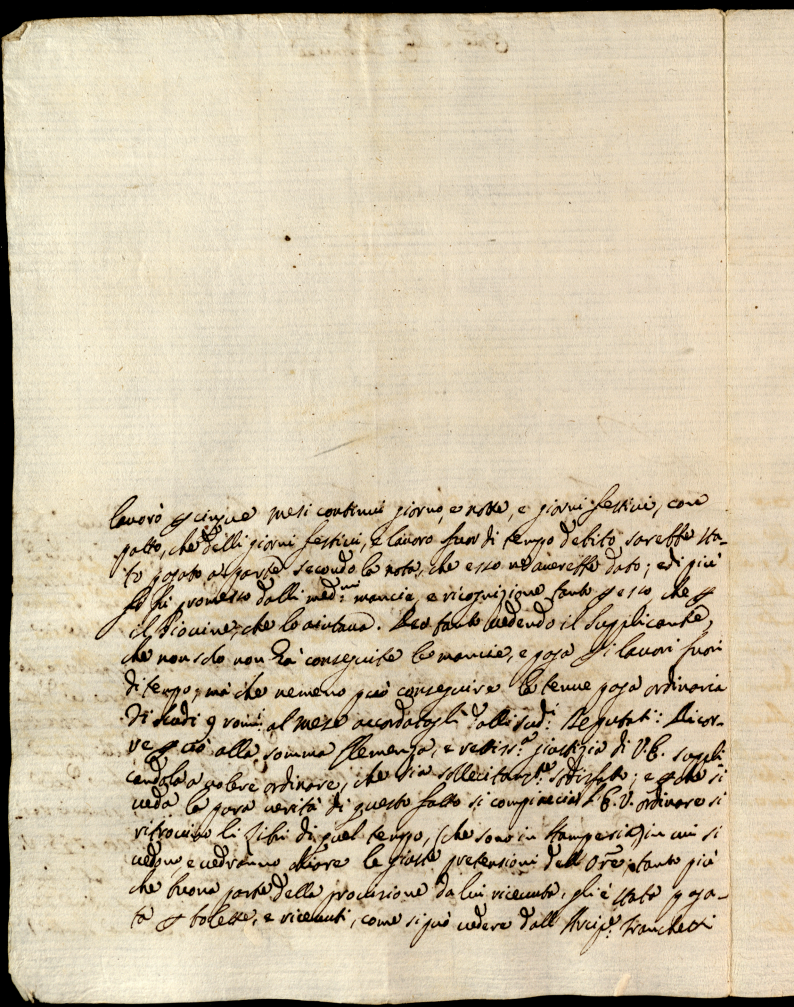 lavorò p cinque mesi continui giorno, e notte, e giorni festivi, con
patto, che delli giorni festivi, e lavoro fuor di tempo debito sarebbe sta-
to pagato a parte secondo le note, che esso ne averebbe dato; e di più
fù promesso dalli med:mi mancia, e ricognizione tanto p esso, che p
il Giovine, che lo aiutava. Per tanto vedendo il supplicante,
che non solo non hà conseguite le mancie, e paga di lavori fuori
di tempo, mà che nemeno può conseguire la tenue paga ordinaria
di scudi 9 rom: al mese accordatagli dalli sud: Deputati: Ricor-
re p ciò alla somma Clemenza, e rettiss:a giustizia di V.E. suppli-
candola a volere ordinare, che sia sollecitam:te sodisfatto; e p che si
veda la pura verità di questo fatto si compiaccia l'E.V. ordinare si
ritrovino li libri di quel tempo, (che sono in stamperia) in cui si
vedono, e vedranno chiare le giuste pretensioni dell'Ore, tanto più
che buona parte della provisione da lui ricevuta, gli è stata paga-
ta p bolette, e ricevuti, come si può vedere dall' Arcip: Franchetti